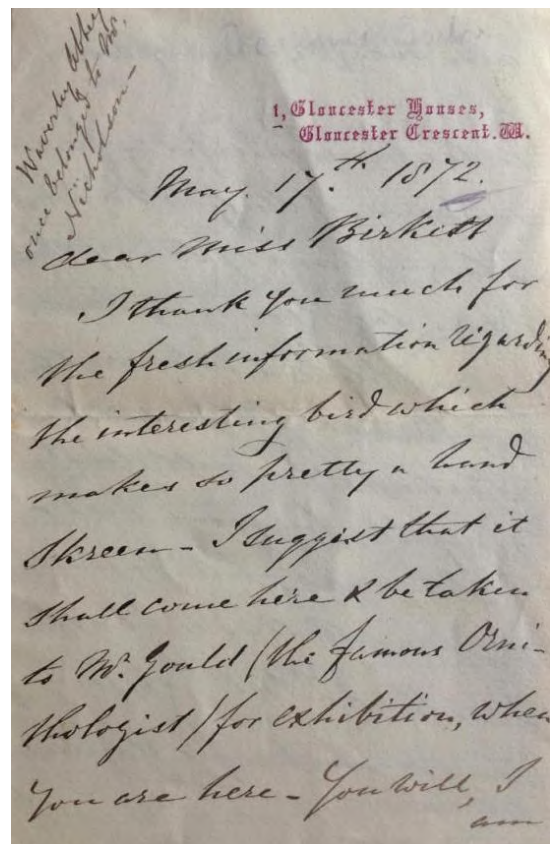 Waverley Abbey
once belonged to Mr.
Nicholson -
1, Gloucester Houses,
Gloucester Crescent. W.
May. 17th. 1872.
dear Miss Birkett
I thank you much for
the fresh information regarding
the interesting bird which
makes so pretty a hand
Skreen - I suggest that it
shall come here & be taken
to Mr. Gould (the famous Orni-
thologist) for exhibition, when
you are here - You will, I
am